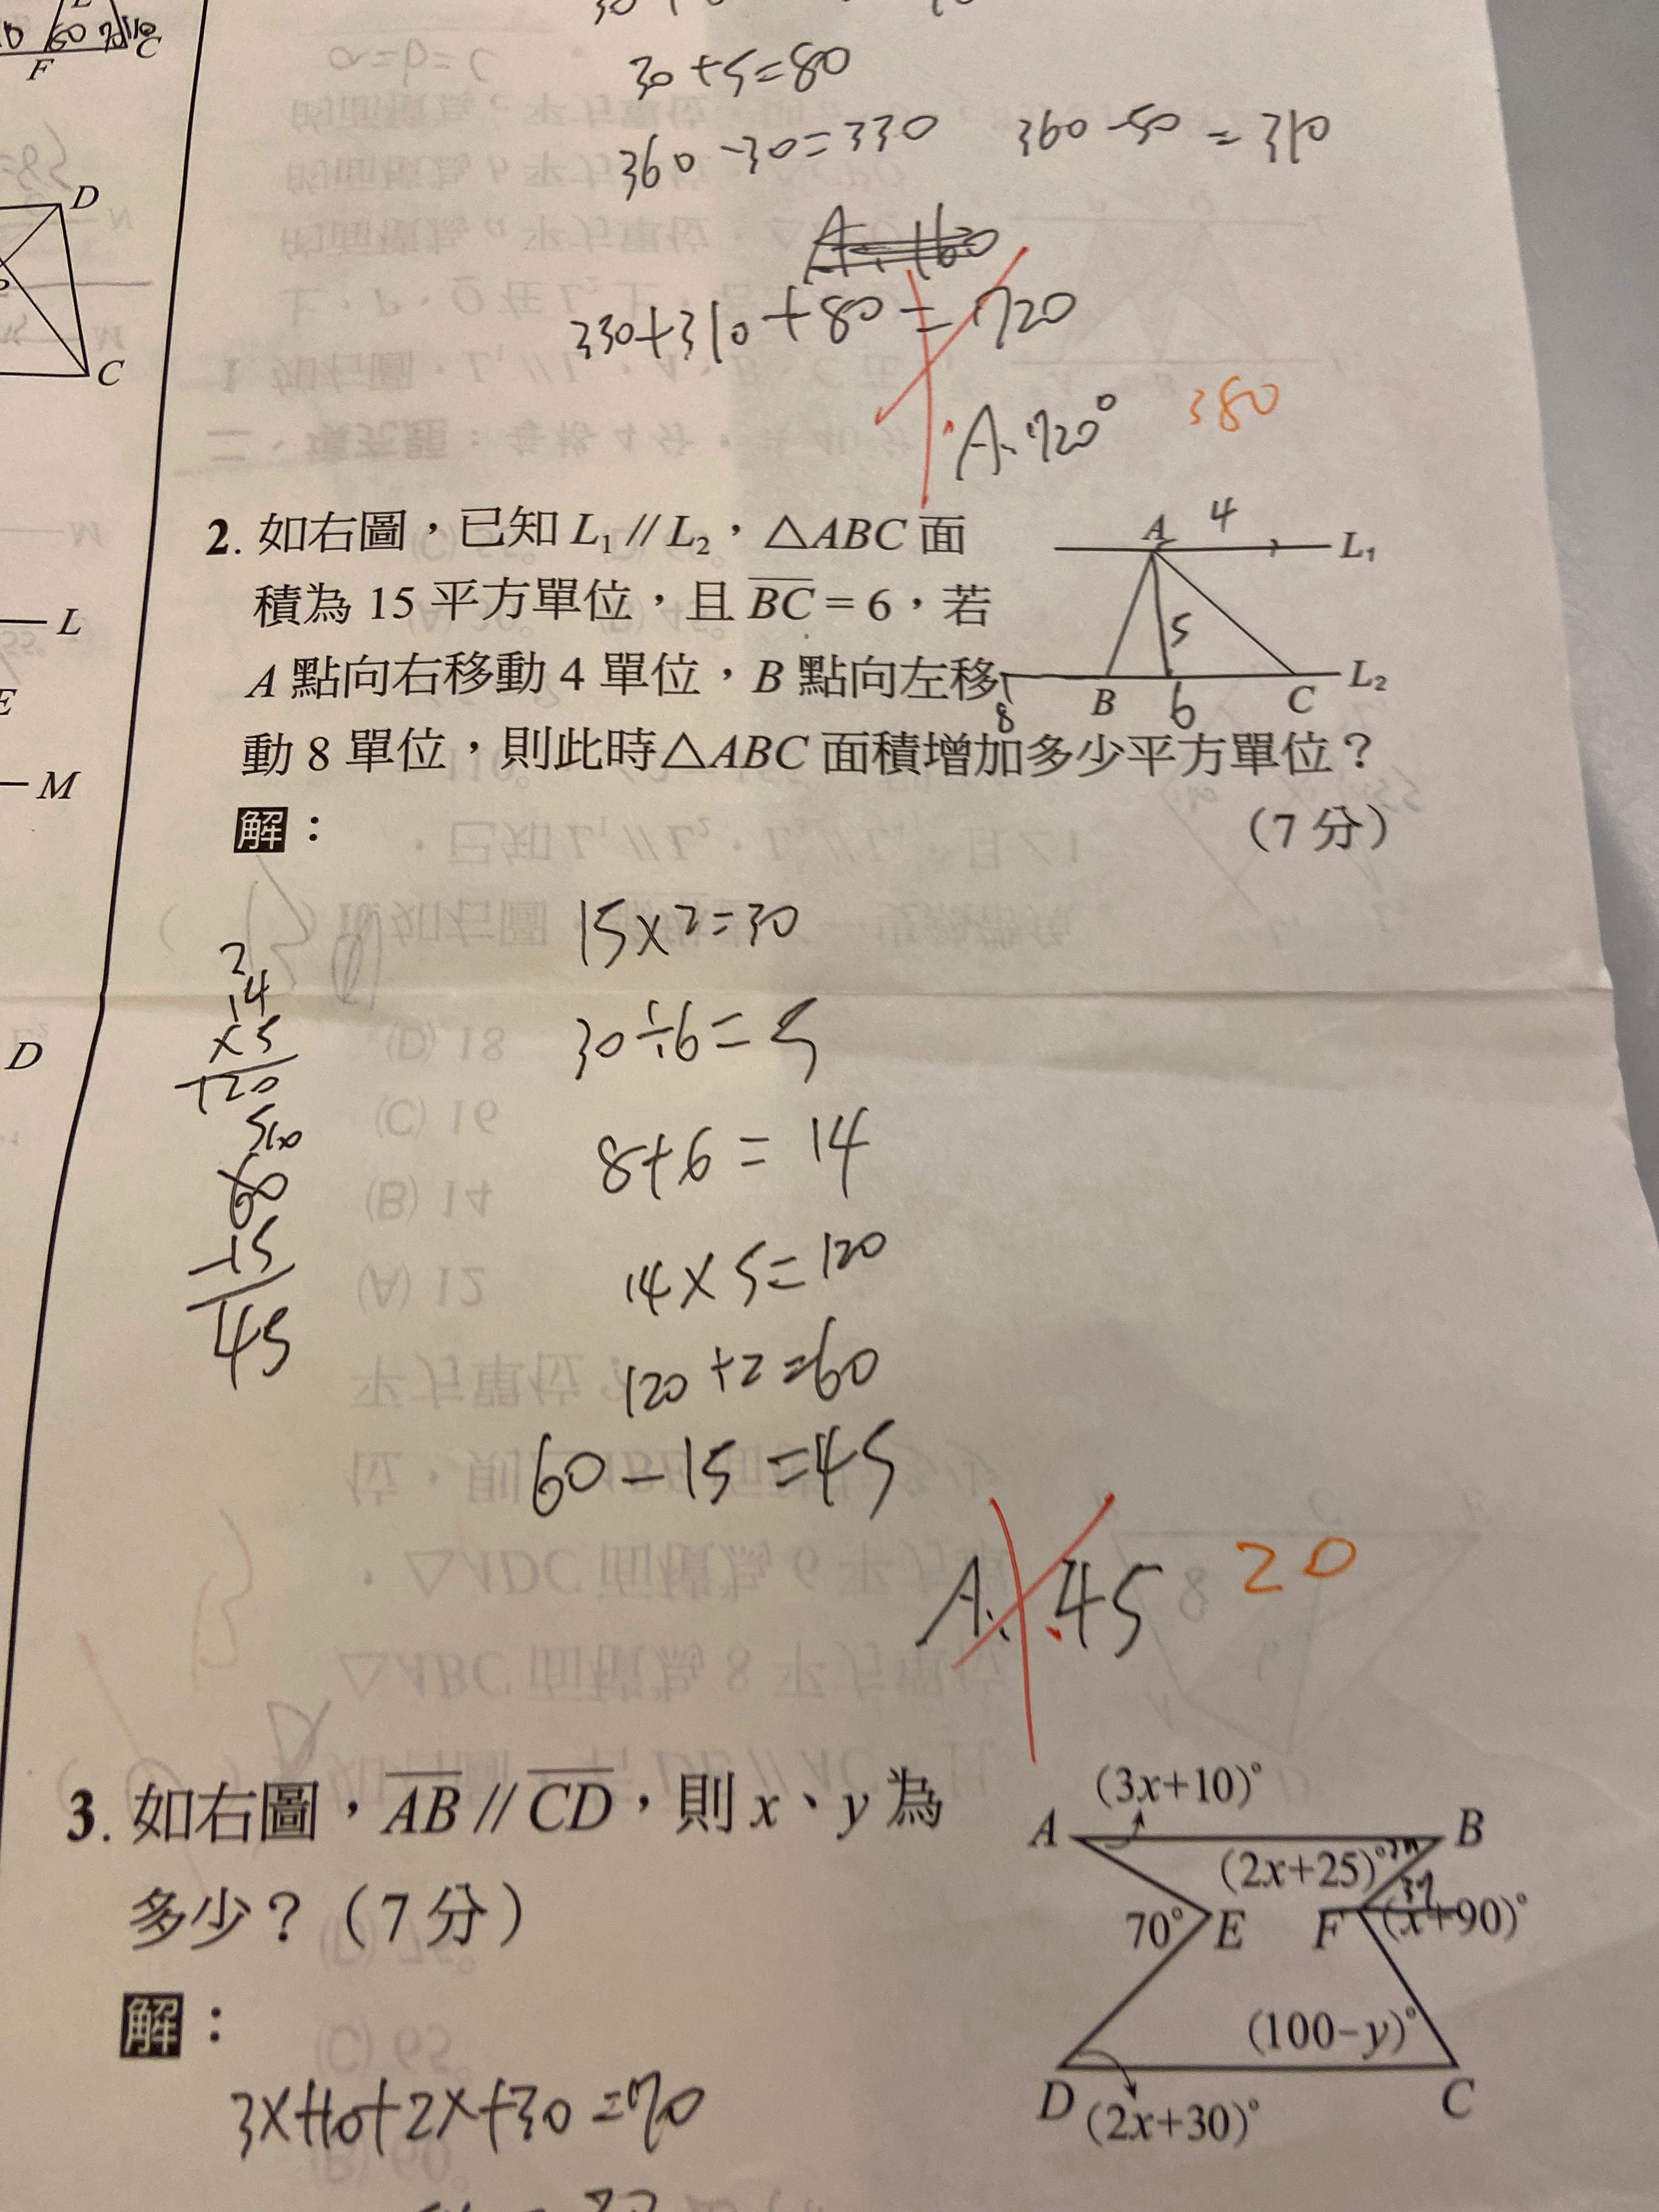 F
C
30+5=80
360-30=330
360-50=310
A: 160
330+310+80=720
A:720°
380
D
C
L
E
M
D
2. 如右圖,已知 L₁ // L₂,△ABC 面
積為 15 平方單位,且 BC = 6,若
A 點向右移動 4 單位,B 點向左移
動 8 單位,則此時△ABC 面積增加多少平方單位?
(7 分)
A
4
L₁
5
8
B
6
C
L₂
解:
15×2=30
30÷6=5
8+6=14
14×5=120
120÷2=60
60-15=45
2
14
×5
120
60
-15
45
A:45
20
3. 如右圖,AB // CD,則 x、y 為
多少?(7 分)
(3x+10)°
A
B
(2x+25)°
70°
E
F
(x+90)°
(100-y)°
D
C
(2x+30)°
解:
3x+10+2x+30=70